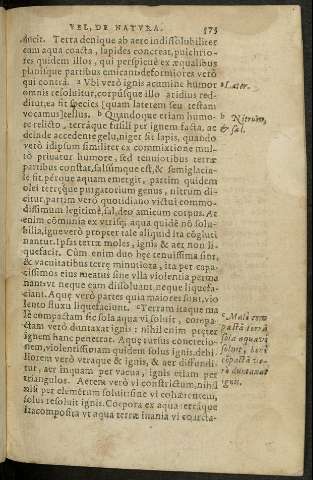 VEL, DE NATVRA. 575
ducit. Terra denique ab aere indissolubiliter
eam aqua coacta, lapides concreat, pulchrio-
res quidem illos, qui perspicuè ex æqualibus
planisque partibus emicant: deformiores verò
qui contrà. a Vbi verò ignis acumine humor
omnis resoluitur, corpúsque illo aridius red-
ditur, ea fit species quam latetem seu testam
vocamus tellus. b Quandoque etiam humo-
re relicto, terráque fusili per ignem facta, ac
deinde accedente gelu, niger fit lapis, quando
verò idipsum similiter ex commixtione mul-
tò priuatur humore, sed tenuioribus terræ
partibus constat, salsúmque est, & semiglacia-
le sit, péroque aquam emergit, partim quidem
olei terræque purgatorium genus, nitrum di-
citur, partim verò quotidiano victui commo-
dissimum legitimè, sal, deo amicum corpus. At
enim cōmunia ex vtrisq; aqua quidē nō solu-
bilia, igne verò propter tale aliquid ita cōgluti
nantur. Ipsas terræ moles, ignis & aer non li-
quefacit. Cùm enim duo hęc tenuissima sint,
& vacuitatibus terrę minutiora, ita per capa-
cissimos eius meatus sine vlla violentia perma
nant vt neque eam dissoluant, neque liquefa-
ciant. Aquę verò partes quia maiores sunt, vio
lento fluxu liquefaciunt. c Terram itaque ma
lè compactam sic sola aqua vi soluit, compa-
ctam verò duntaxat ignis: nihil enim pręter
ignem hanc penetrat. Aquę rursus concretio-
nem, violentissimam quidem solus ignis, debi
liorem verò vtraque & ignis, & aer diffundi-
tur, aer inquam per vacua, ignis etiam per
triangulos. Aerem verò vi constrictum, nihil
nisi per elemētum soluit: sine vi cohærentem,
solus resoluit ignis. Corpora ex aqua terráque
ita composita vt aqua terræ inania vi coarcta-
a Later.
b Nitrum,
& sal.
c Malè com
pactā terrā
sola aqua vi
soluit, benè
cōpactā ve-
rò duntaxat
ignis.